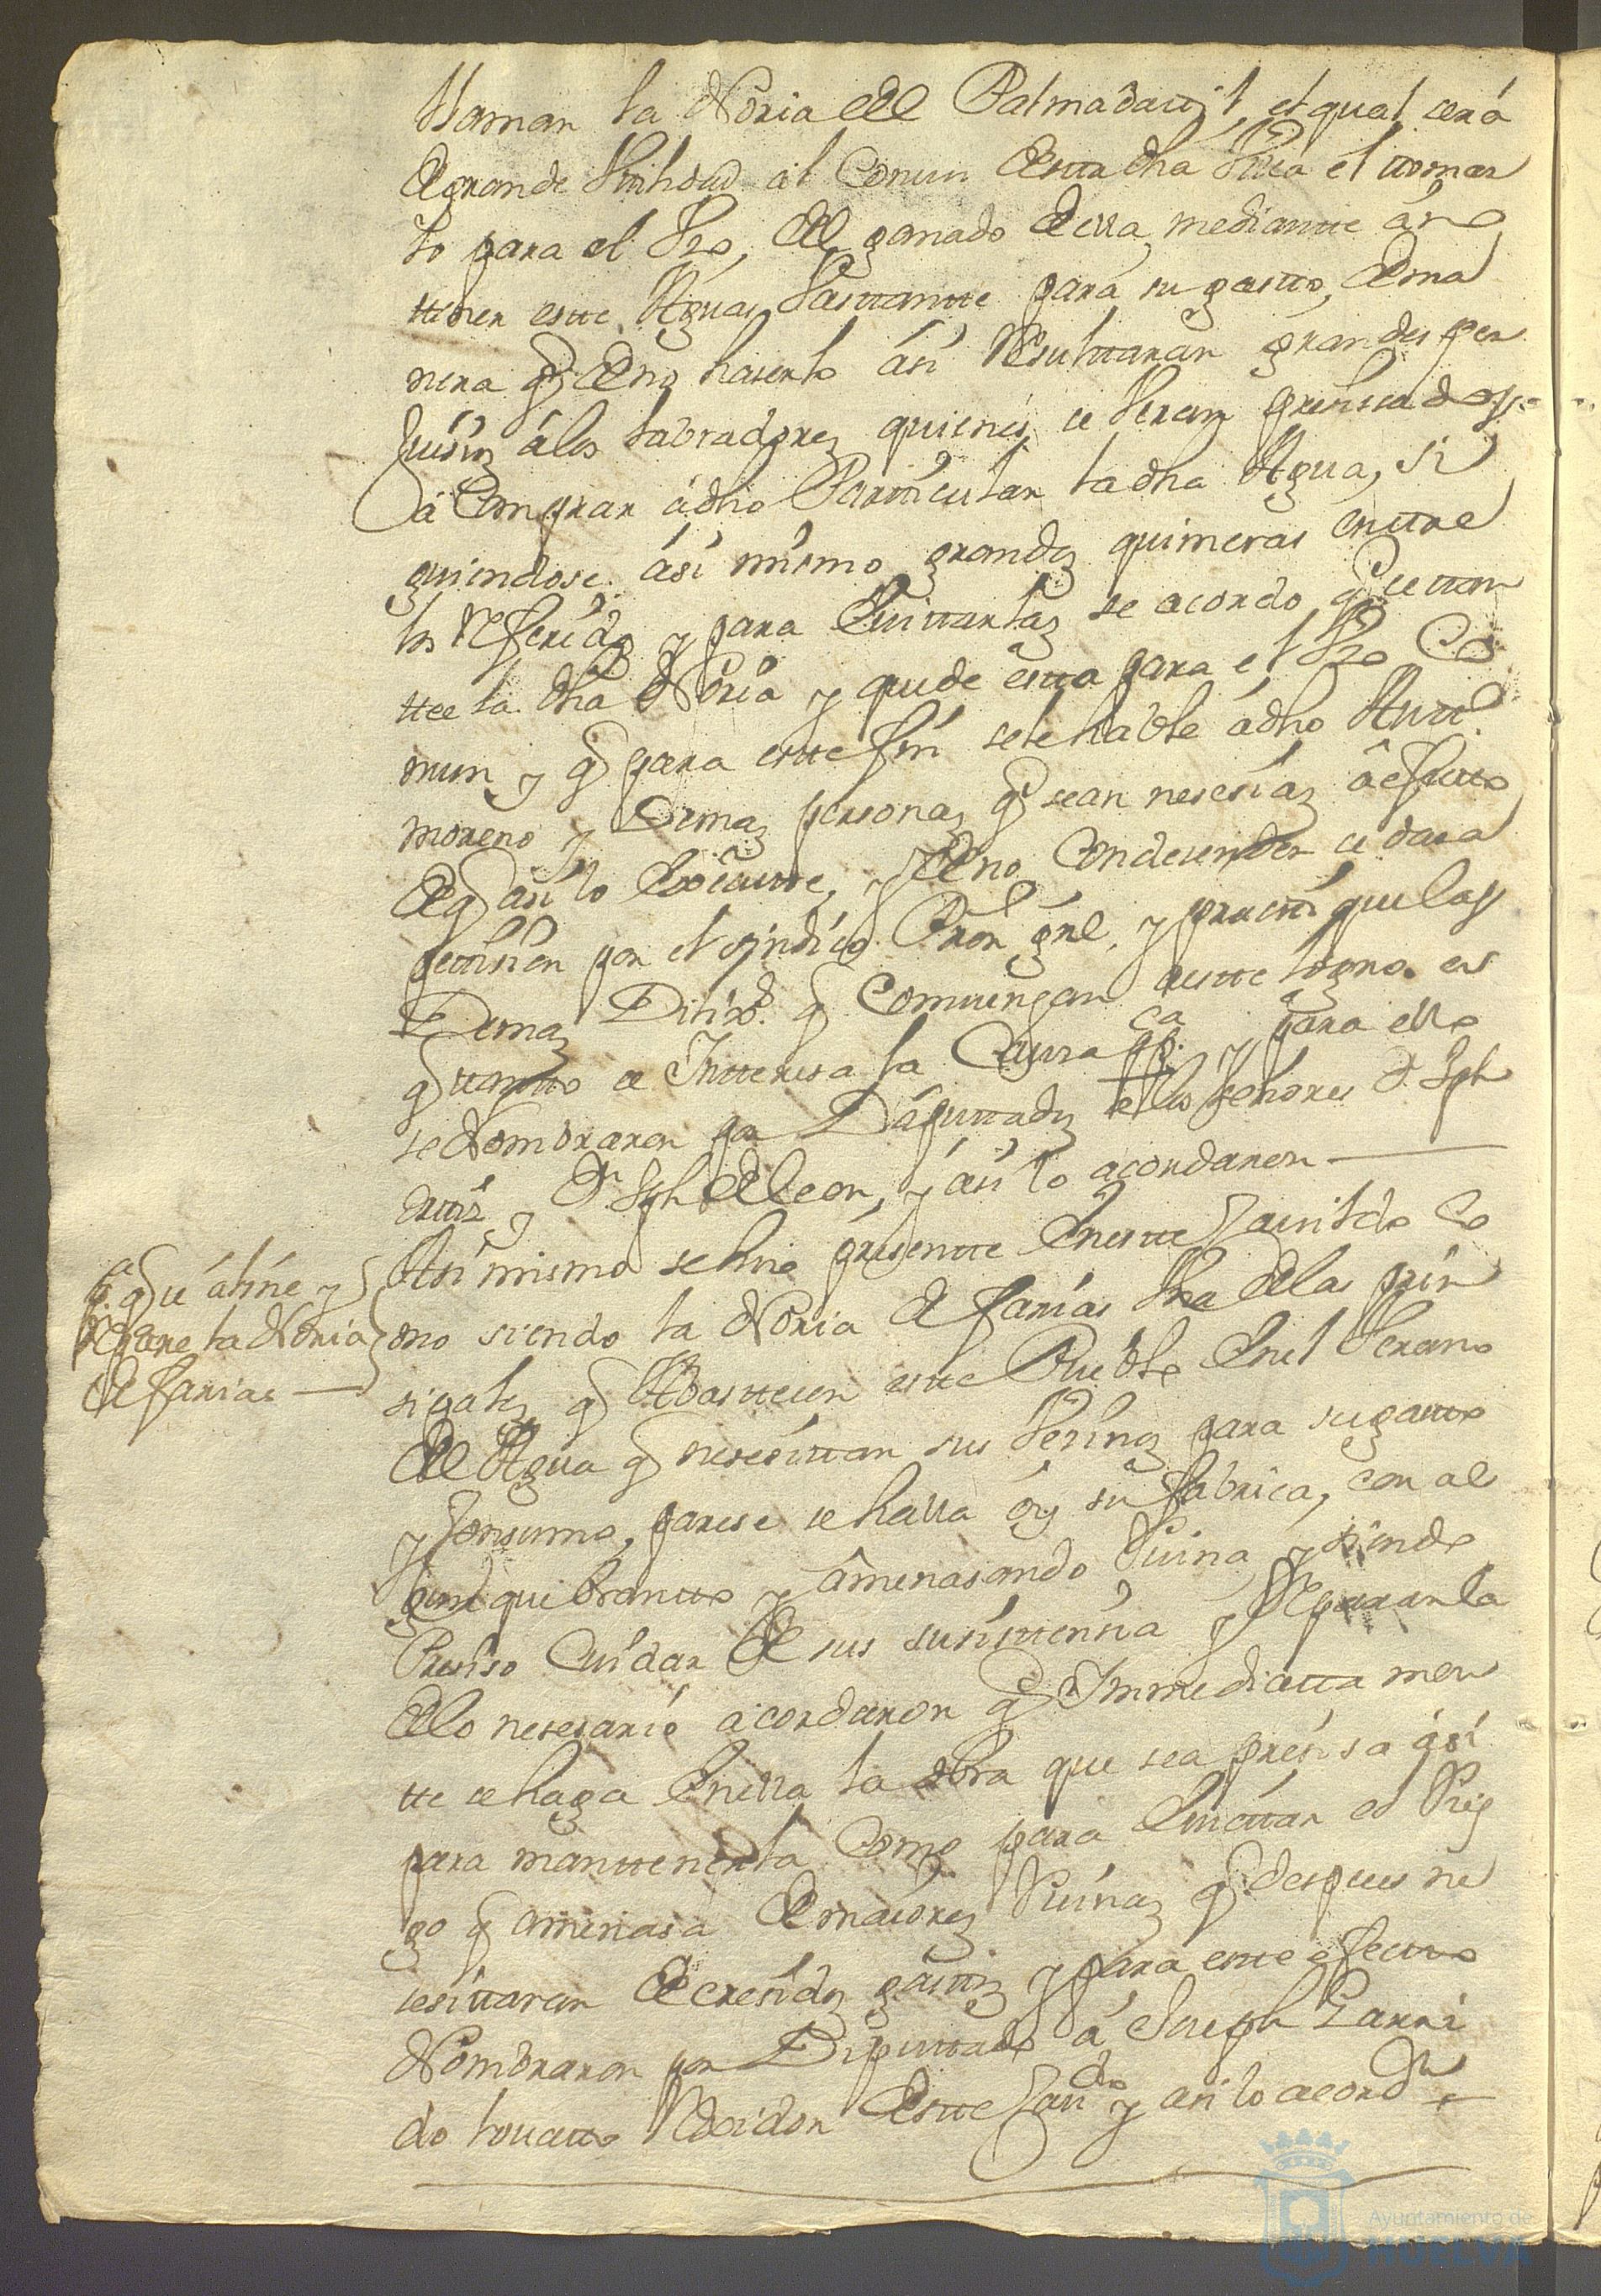 llaman la Noria del Palmadavil, el qual será
de grande Utilidad al Comun destta dha Villa el ttomar
lo para el Uzo, del ganado della, mediantte á no
ttener estte Aguas Vasttantte para su gastto, de ma
nera q de no haserlo ási Resulttaran grandes per
Juisios álos labradores quienes se Veran presisados
á Comprar ádho Partticular la dha Agua, si
guiendose ási mismo grandes quimeras enttre
los Referidos y para Evittarlas se acordo q se ttan
ttee la dha Noria y quede estta para el Uzo Co
mun y q para estte fin se le hable ádho Antt.º
moreno y Demas personas q sean nesesías á efectto
de q asi lo Execcutte, y de no Condesender se dara
pettision por el sindico Pror grl, y practtiquelas
Demas Dilix.s q Convengan a estte logro en
q tantto se Intteresa la Causa pp.ca y para ello
se Nombraron por Diputtados los señores D. Jph
Ruiz y Dn Jph de leon, y ási lo acordaron
Asi mismo se hiso presentte En estte Cavildo Co
mo siendo la Noria de farias Una de las prin
sipales q Abasttecen estte Pueblo En el Verano
del Agua q nesesittan sus Vezinos para su gastto
y Consumo, parese se halla oy su fabrica, con al
gun quebrantto y ámenasando Ruina y siendo
Presiso Cuidar de sus susisttensia y Repararla
de lo nesesario ácordaron q Immediatta men
tte se haga En ella la obra que sea presisa ási
para manttenerla Como para Evittar el Ries
go q amenasa de maiores Ruinas q despues ne
sesittaran de cresidos gasttos y para estte efectto
Nombraron por Diputtado á Joseph Garri
do lovatto Rexidor destte Cavdo y asi lo acordn
p.a q se áliñe y
Repare la Noria
de farias
Ayuntamiento de
HUELVA